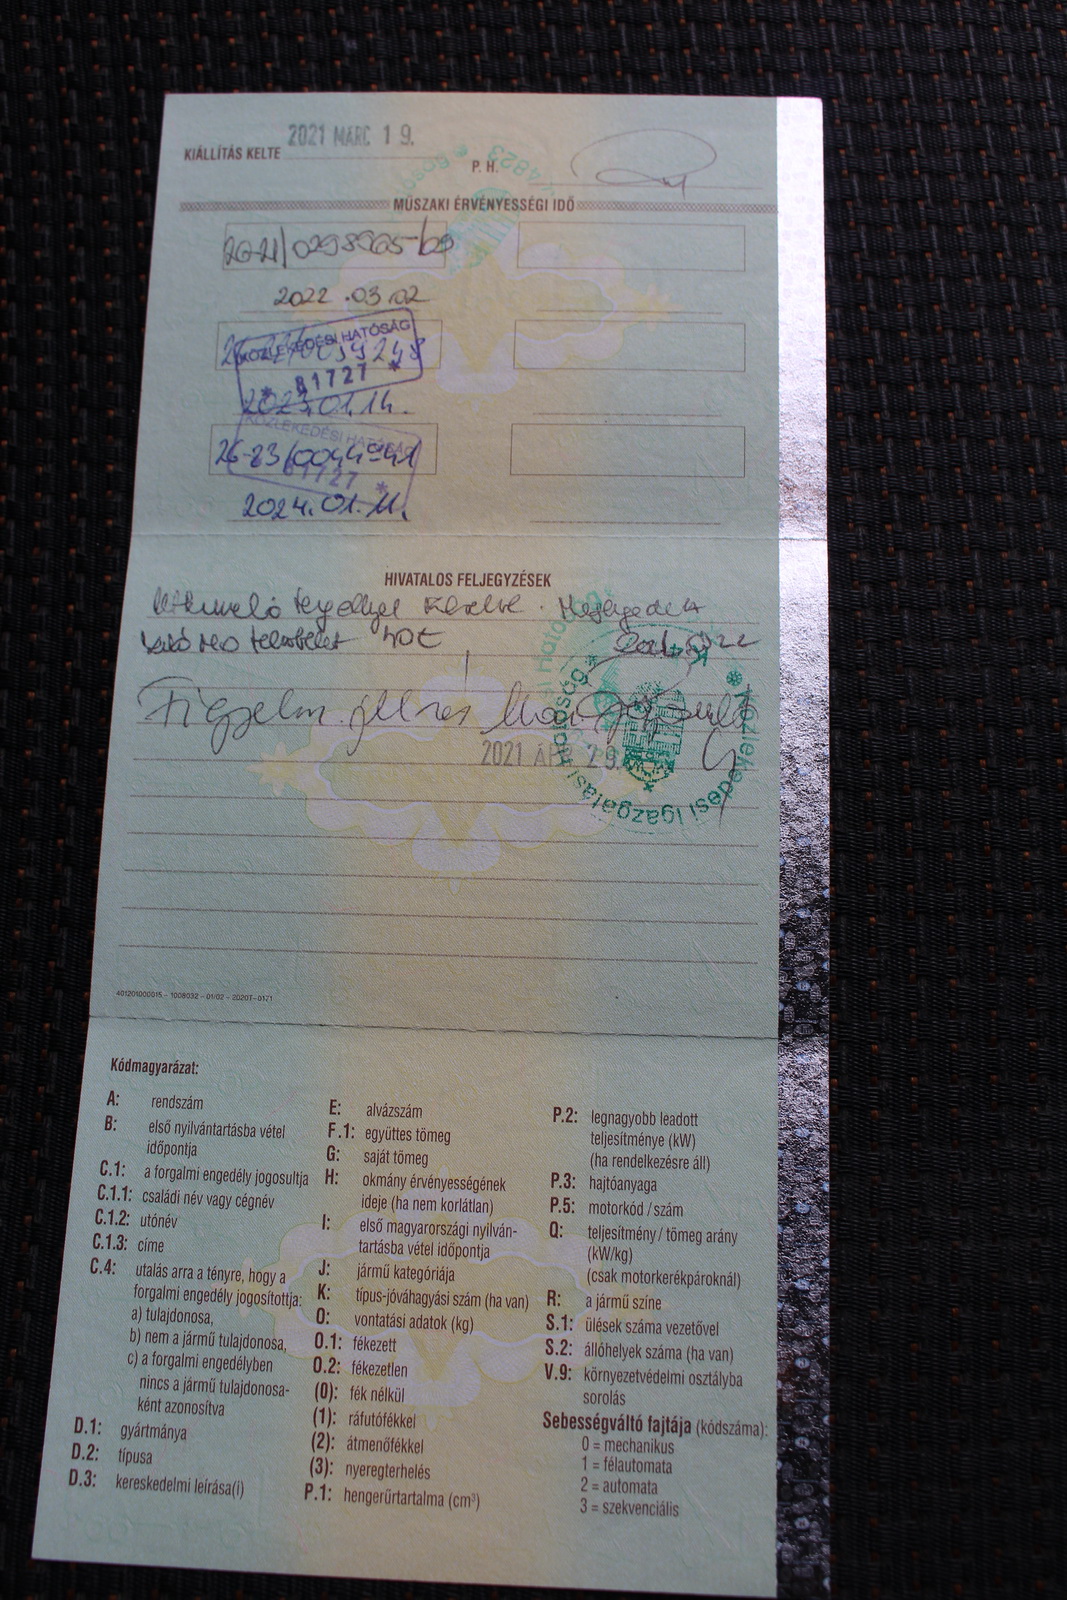 KIÁLLÍTÁS KELTE 2021 MÁRC 19. P. H.
MŰSZAKI ÉRVÉNYESSÉGI IDŐ
2022.03.02
KÖZLEKEDÉSI HATÓSÁG
* 81727 *
2023.01.14.
KÖZLEKEDÉSI HATÓSÁG
2024.01.11.
HIVATALOS FELJEGYZÉSEK
2021 ÁPR 29.
Közlekedési Igazgatási Hatóság
401201000015 – 1008032 – 01/02 – 2020T–0171
Kódmagyarázat:
A: rendszám
B: első nyilvántartásba vétel
időpontja
C.1: a forgalmi engedély jogosultja
C.1.1: családi név vagy cégnév
C.1.2: utónév
C.1.3: címe
C.4: utalás arra a tényre, hogy a
forgalmi engedély jogosítottja:
a) tulajdonosa,
b) nem a jármű tulajdonosa,
c) a forgalmi engedélyben
nincs a jármű tulajdonosa-
ként azonosítva
D.1: gyártmánya
D.2: típusa
D.3: kereskedelmi leírása(i)
E: alvázszám
F.1: együttes tömeg
G: saját tömeg
H: okmány érvényességének
ideje (ha nem korlátlan)
I: első magyarországi nyilván-
tartásba vétel időpontja
J: jármű kategóriája
K: típus-jóváhagyási szám (ha van)
O: vontatási adatok (kg)
O.1: fékezett
O.2: fékezetlen
(0): fék nélkül
(1): ráfutófékkel
(2): átmenőfékkel
(3): nyeregterhelés
P.1: hengerűrtartalma (cm³)
P.2: legnagyobb leadott
teljesítménye (kW)
(ha rendelkezésre áll)
P.3: hajtóanyaga
P.5: motorkód / szám
Q: teljesítmény / tömeg arány
(kW/kg)
(csak motorkerékpároknál)
R: a jármű színe
S.1: ülések száma vezetővel
S.2: állóhelyek száma (ha van)
V.9: környezetvédelmi osztályba
sorolás
Sebességváltó fajtája (kódszáma):
0 = mechanikus
1 = félautomata
2 = automata
3 = szekvenciális